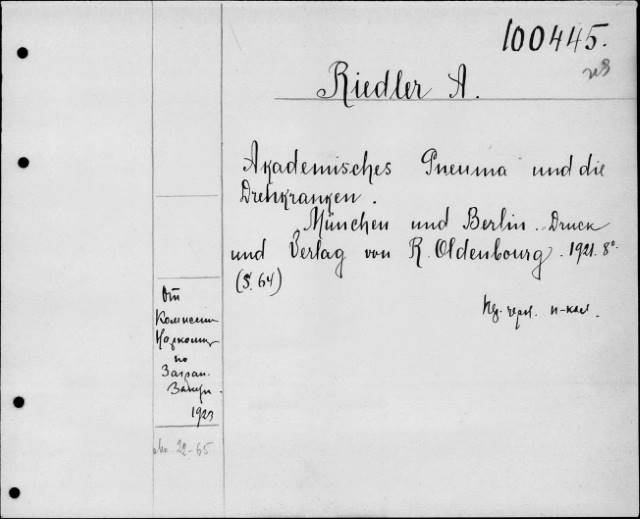 100445.
Riedler A.
Akademisches Pneuma und die
Drehkranken.
München und Berlin. Druck
und Verlag von R. Oldenbourg. 1921. 8°
(S. 64)
От
Комиссии
Наркомпр
по
Загран.
Закуп.
1923
22-65